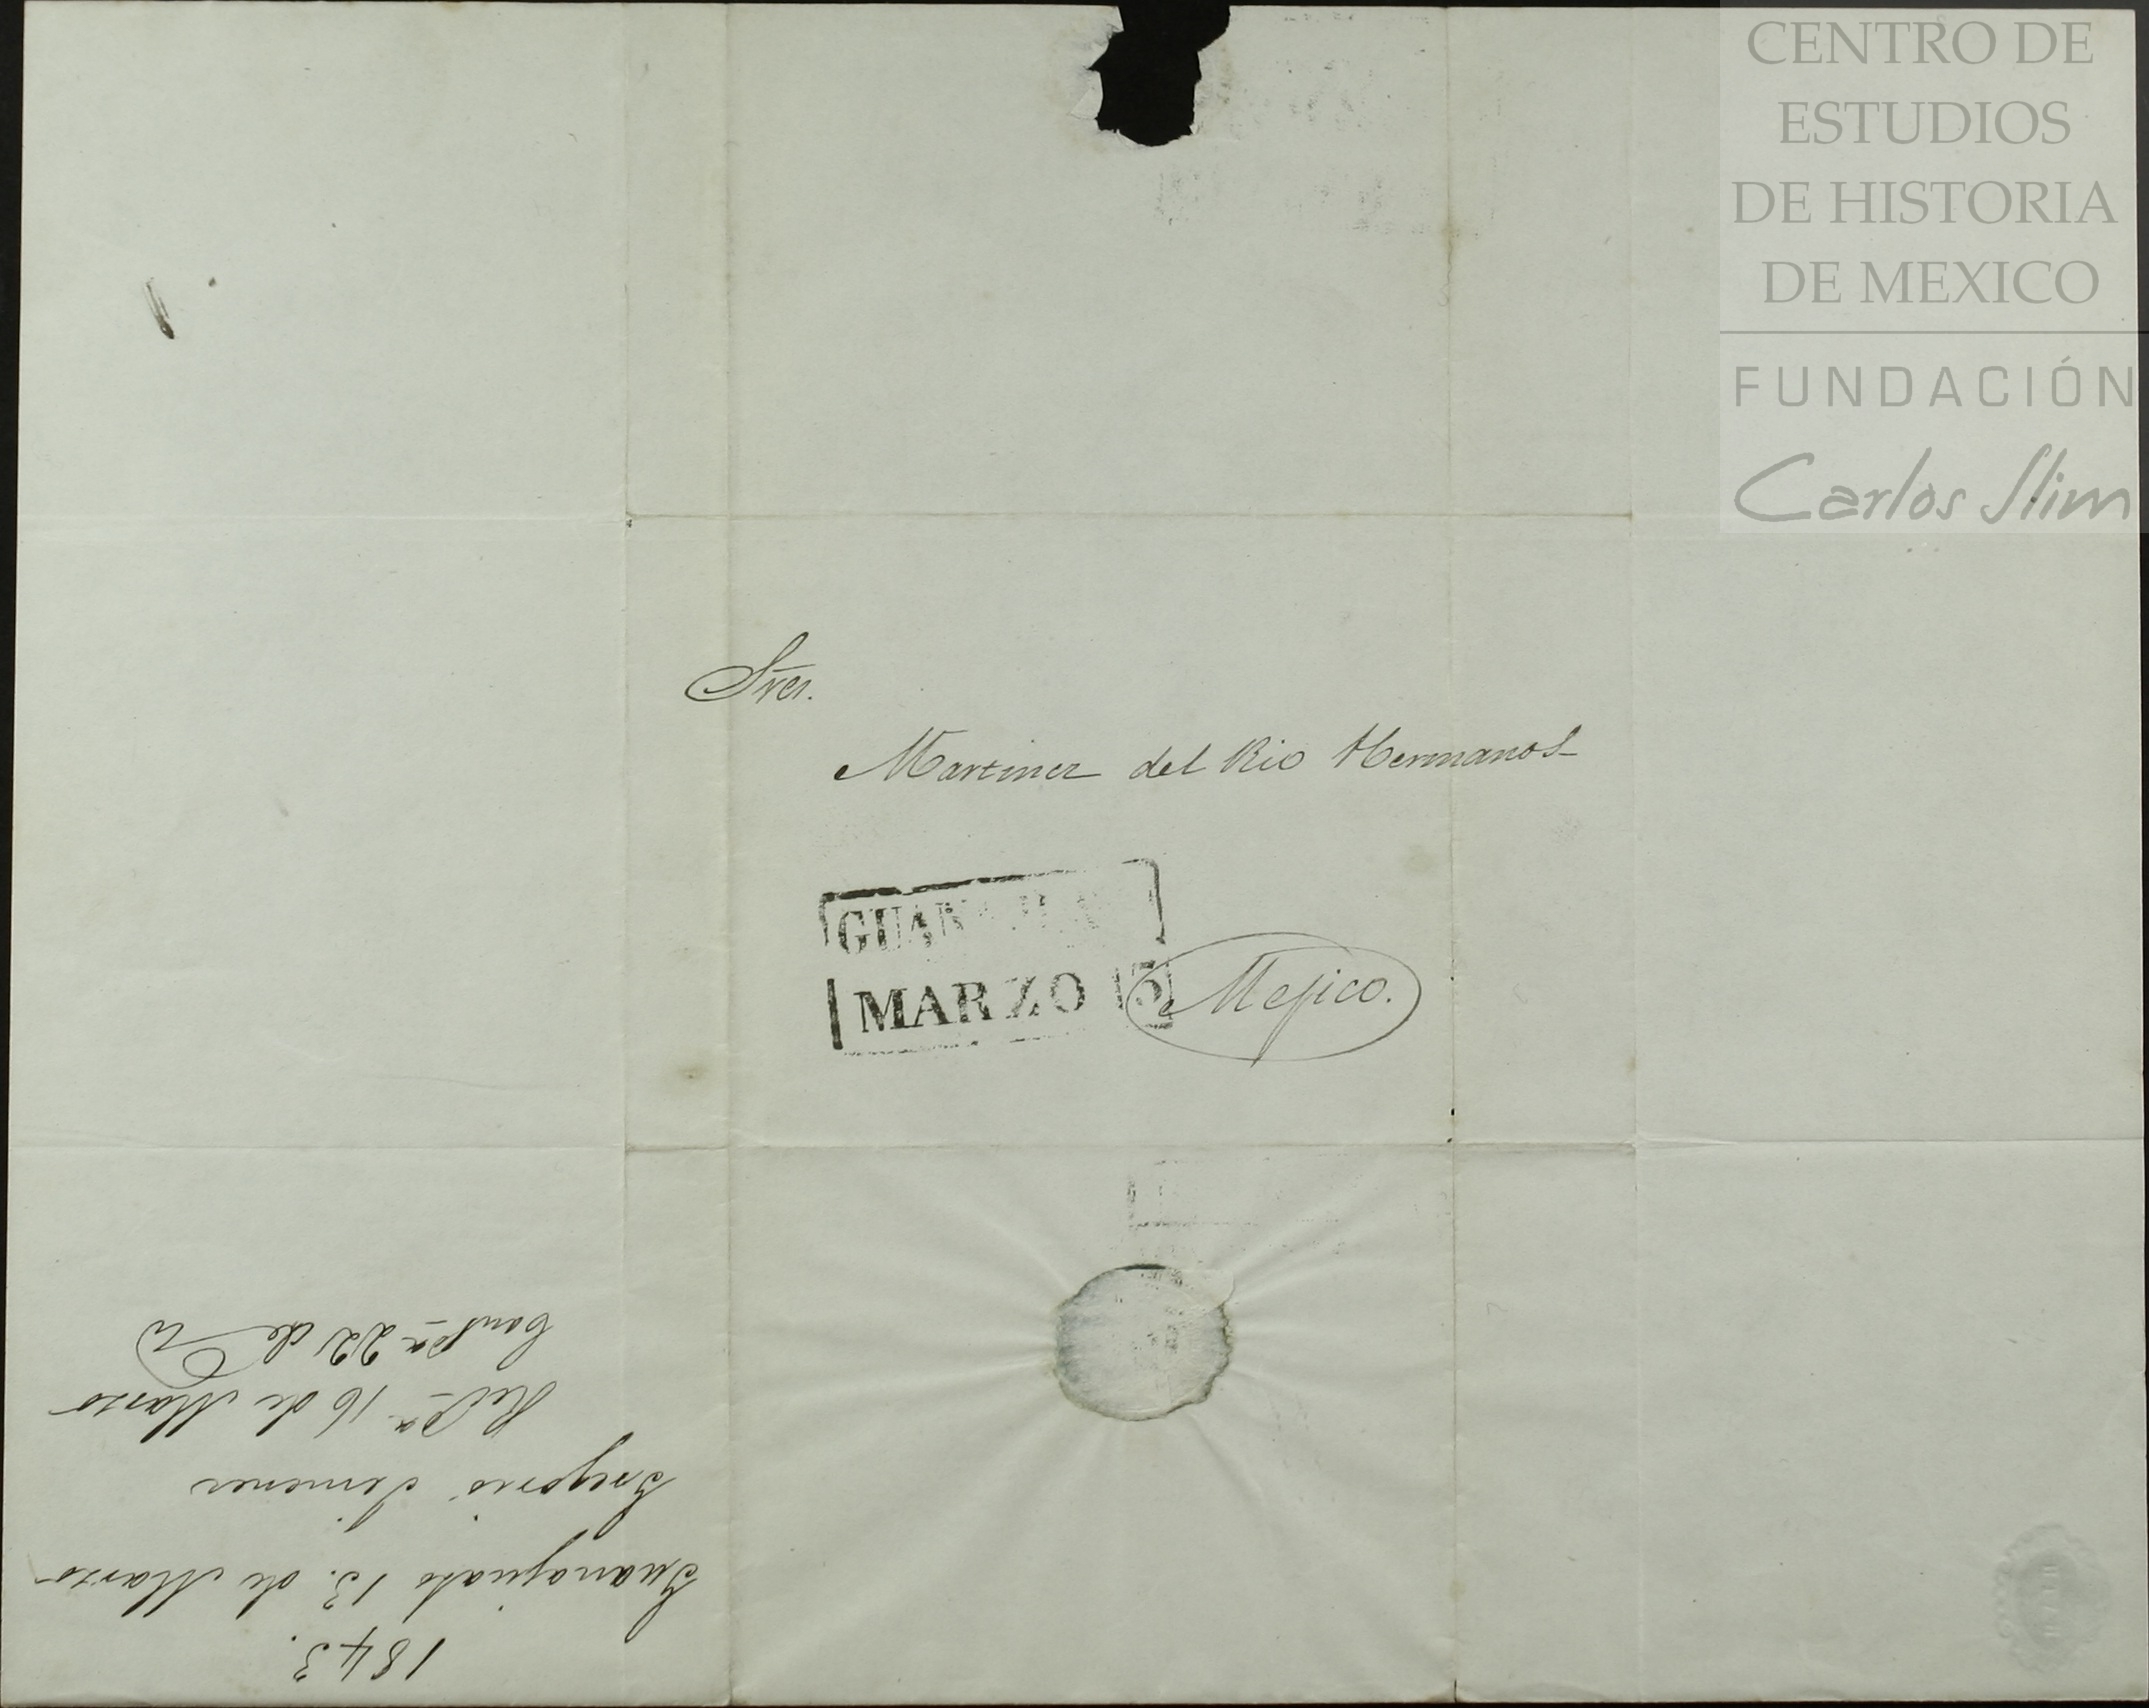 CENTRO DE
ESTUDIOS
DE HISTORIA
DE MEXICO
FUNDACIÓN
Carlos Slim
Sres.
Martinez del Rio Hermanos
MARZO
Mejico.
1843.
Guanajuato 13. de Marzo
Gregorio Jimenez
16 de Marzo
22 de